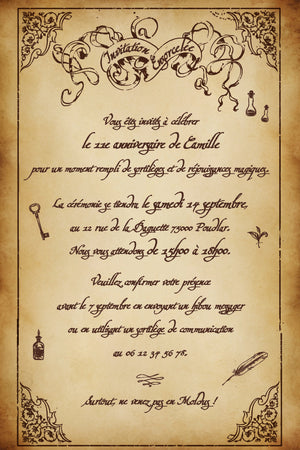 Invitation Ensorcelée
Vous êtes invités à célébrer
le 11e anniversaire de Camille
pour un moment rempli de sortilèges et de réjouissances magiques.
La cérémonie se tiendra le samedi 14 septembre,
au 12 rue de la Baguette 75000 Poudlar.
Nous vous attendons de 15h00 à 18h00.
Veuillez confirmer votre présence
avant le 7 septembre en envoyant un hibou messager
ou en utilisant un sortilège de communication
au 06 12 34 56 78.
Surtout, ne venez pas en Moldus !